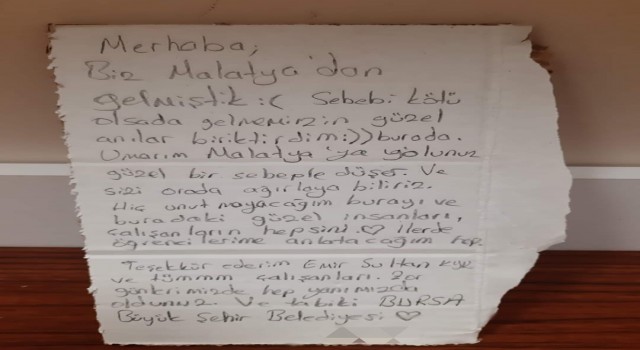 Merhaba,
Biz Malatya'dan
gelmiştik :( Sebebi kötü
olsada gelmemizin güzel
anılar biriktirdim :)) burada.
Umarım Malatya'ya yolunuz
güzel bir sebeple düşer. Ve
sizi orada ağırlaya biliriz.
Hiç unutmayacağım burayı ve
buradaki güzel insanları,
çalışanların hepsini. ♡ İlerde
öğrencilerime anlatacağım hep.
Teşekkür ederim Emir Sultan kyk
ve tümmm çalışanları. Zor
günlerimizde hep yanımızda
oldunuz. Ve tabiki BURSA
Büyük Şehir Belediyesi ♡